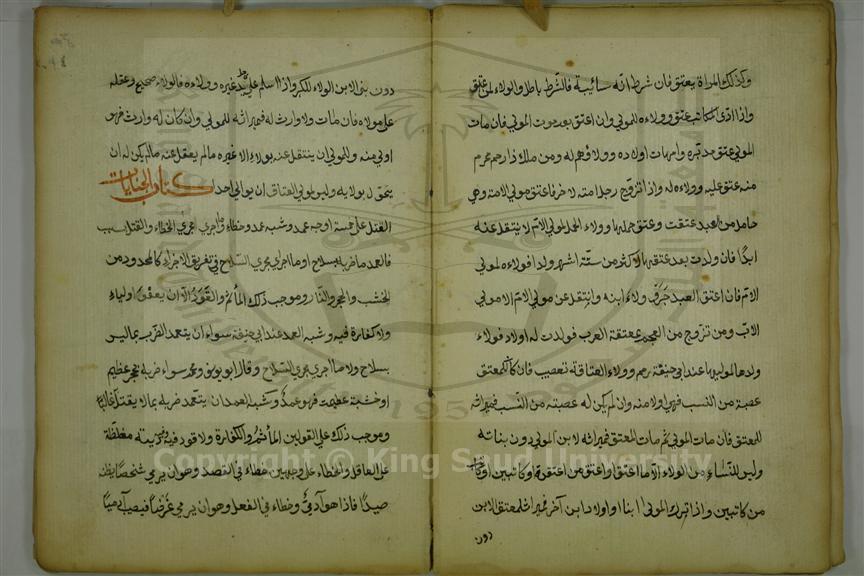 وكذلك المراة يعتق فان شرط انه سائبة فالشرط باطل والولاء لمن اعتق
واذا ادى المكاتب عتق وولاءه للمولى وان اعتق بعد موت المولى فان مات
المولى عتق مدبره وامهات اولاده وولاؤهم له ومن ملك ذا رحم محرم
منه عتق عليه وولاءه له واذا تزوج رجل امة لاخر فاعتق مولى الامة وهي
حامل من العبد عتقت وعتق حملها وولاء الحمل لمولى الام لا ينتقل عنه
ابدا فان ولدت بعد عتقها لاكثر من ستة اشهر ولدا فولاءه لمولى
الام فان اعتق العبد جر ولاء ابنه وانتقل عن مولى الام الا مولى
الاب ومن تزوج من العجم بمعتقة العرب فولدت له اولاد فولاء
ولدها لمواليها عند ابي حنيفة رحم وولاء العتاقة تعصيب فان كان للمعتق
عصبة من النسب فهي اولا منه وان لم يكن له عصبته من النسب فميراثه
للمعتق فان مات المولى ثم مات المعتق فميراثه لابن المولى دون بناته
وليس للنساء من الولاء الا ما اعتق او اعتق من اعتقن او كاتبن او كاتب
من كاتبن واذا ترك المولى ابنا واولاد ابن آخر فميراث المعتق للابن
دون
دون بنى الابن الولاء للكبر واذا اسلم على يد غيره وولاءه فالولاء صحيح وعقله
على مولاه فان مات ولا وارث له فميراثه للمولى وان كان له وارث فهو
اولى منه وللمولى ان ينتقل عنه بولاء الا غيره مالم يعقل عنه مالم يكن له ان
يتحول بولايه وليس لمولى العتاق ان يوالي احدا كتاب الجنايات
القتل على خمسة اوجه عمد وشبه عمد وخطاء وما جرى مجرى الخطاء والقتل بسبب
فالعمد ما ضربه بسلاح او ما اجرى مجرى السلاح في تفريق الاجزاء كالمحدود من
الخشب والحجر والنار وموجب ذلك المأثم والقود الا ان يعفو اولياء
ولا كفارة فيه وشبه العمد عند ابي حنيفة سواء ان يتعمد الضرب بما ليس
بسلاح ولا ما اجرى مجرى السلاح وقال ابو يوسف ومحمد سواء ضربه بحجر عظيم
او خشبة عظيمة فهو عمد وشبه العمد ان يتعمد ضربه بما لا يقتل غالبا
وموجب ذلك على القولين المأثم والكفارة ولا قود فيه وفيه دية مغلظة
على العاقل والخطاء على وجهين خطاء في القصد وهو ان يرمي شخصا يظن
صيدا فاذا هو آدمي وخطاء في الفعل وهو ان يرمي غرضا فيصيب آدميا
Copyright © King Saud University